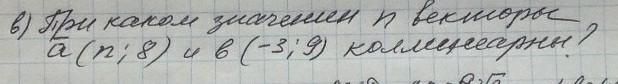 в) При каком значении n векторы
a (n; 8) и в (-3; 9) коллинеарны?